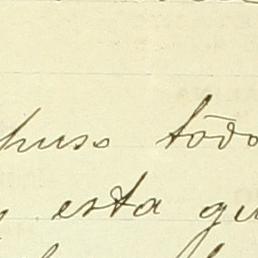 puso todo
esta gu